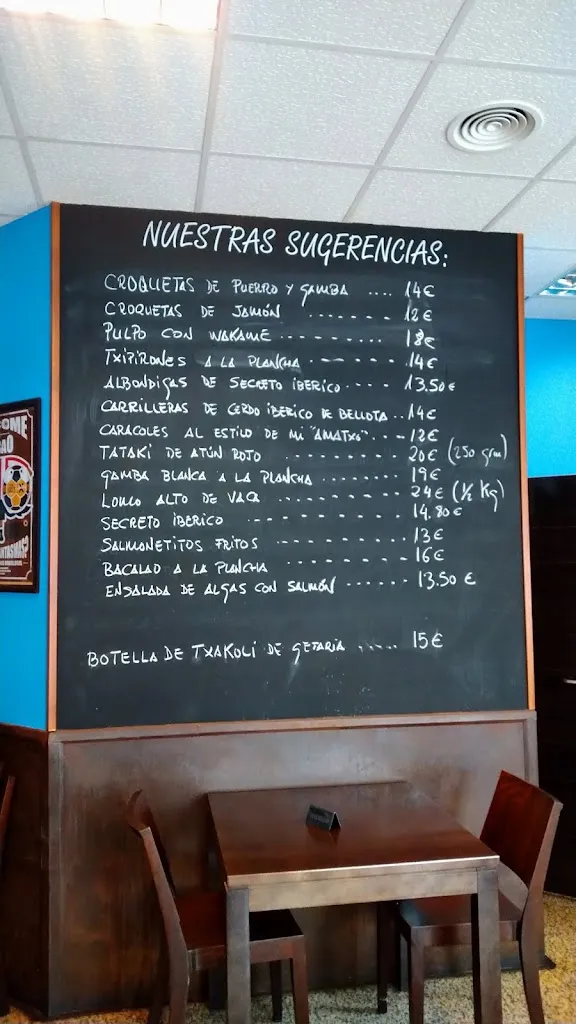 NUESTRAS SUGERENCIAS:
CROQUETAS DE PUERRO Y GAMBA .... 14€
CROQUETAS DE JAMÓN ....... 12€
PULPO CON WAKAME ...... 18€
TXIPIRONES A LA PLANCHA ....... 14€
ALBONDIGAS DE SECRETO IBERICO .... 13,50€
CARRILLERAS DE CERDO IBERICO DE BELLOTA .. 14€
CARACOLES AL ESTILO DE MI "AMATXO" ... 12€
TATAKI DE ATÚN ROJO ......... 20€ (250 grm)
GAMBA BLANCA A LA PLANCHA ...... 19€
LOMO ALTO DE VACA ........... 24€ (½ Kg)
SECRETO IBERICO ............ 14.80€
SALMONETITOS FRITOS ......... 13€
BACALAO A LA PLANCHA ........ 16€
ENSALADA DE ALGAS CON SALMÓN ...... 13.50 €
BOTELLA DE TXAKOLI DE GETARIA ..... 15€